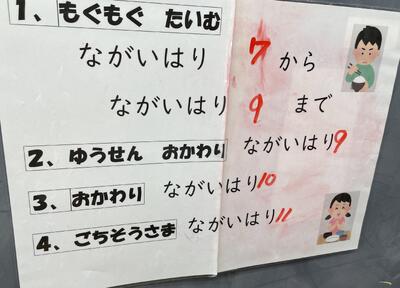 1、もぐもぐ たいむ
ながいはり 7 から
ながいはり 9 まで
2、ゆうせん おかわり ながいはり9
3、おかわり ながいはり10
4、ごちそうさま ながいはり11